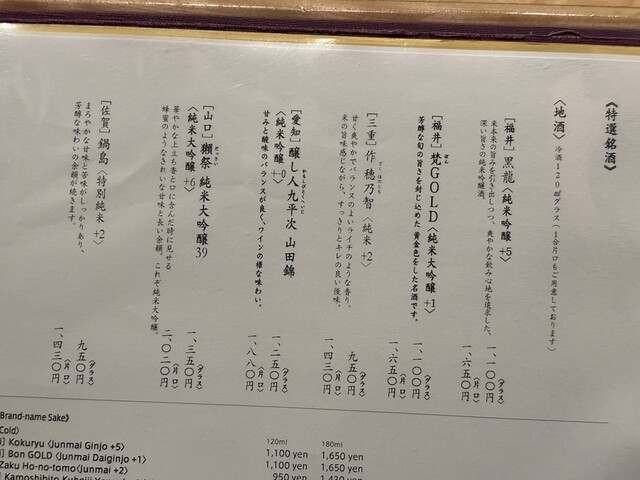 《特選銘酒》
〈地酒〉 冷酒120㎖グラス（1合片口もご用意しております）
［福井］黒龍〈純米吟醸 +5〉
米本来の旨みを引き出しつつ、爽やかな飲み心地を追求した、
深い旨さの純米吟醸酒。
一、一〇〇円（グラス）
一、六五〇円（片口）
［福井］梵GOLD〈純米大吟醸 +1〉
ぼん
芳醇な旬の旨さを封じ込めた 黄金色をした名酒です。
一、一〇〇円（グラス）
一、六五〇円（片口）
［三重］作 穂乃智〈純米 +2〉
ざく ほのとも
甘く爽やかでバランスのよいライチのような香り。
米の旨味感じながら、すっきりとキレの良い後味。
九五〇円（グラス）
一、四三〇円（片口）
［愛知］醸し人九平次 山田錦
かもしびとくへいじ
〈純米吟醸 +0〉
甘みと酸味のバランスが良く、ワインの様な味わい。
一、二五〇円（グラス）
一、八八〇円（片口）
［山口］獺祭 純米大吟醸39
だっさい
〈純米大吟醸 +6〉
華やかな上立ち香と口に含んだ時に見せる
蜂蜜のようなきれいな甘味と長い余韻。これぞ純米大吟醸。
一、三五〇円（グラス）
二、〇二〇円（片口）
［佐賀］鍋島〈特別純米 +2〉
まろやかな甘味と苦味がしっかりあり、
芳醇な味わいの余韻が続きます。
九五〇円（グラス）
一、四三〇円（片口）
Brand-name Sake》
Cold〉 120ml 180ml
i] Kokuryu〈Junmai Ginjo +5〉 1,100 yen 1,650 yen
i] Bon GOLD〈Junmai Daiginjo +1〉 1,100 yen 1,650 yen
Zaku Ho-no-tomo〈Junmai +2〉 950 yen 1,430 yen
] Kamoshibito Kuheiji